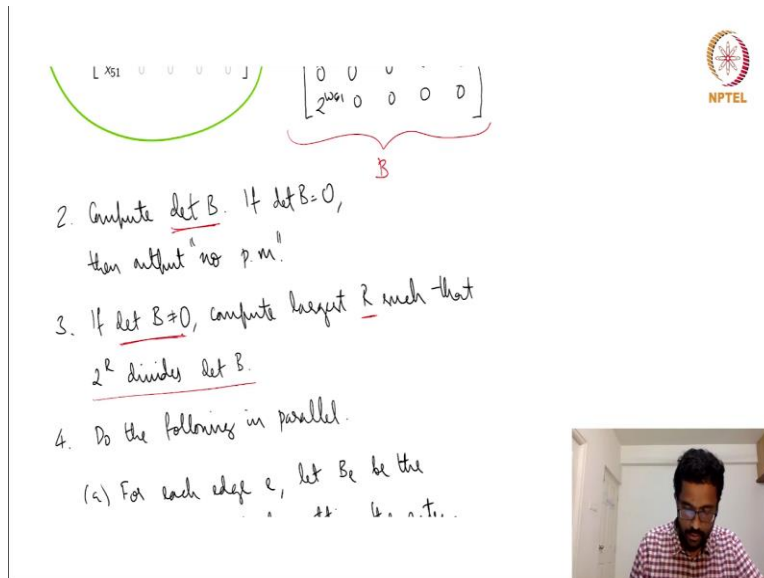 [ x51 0 0 0 0 ]
0 0 0
[ 2^w61 0 0 0 0 ]
B
NPTEL
2. Compute det B. If det B=0,
then output "no p.m".
3. If det B≠0, compute largest R such that
2^R divides det B.
4. Do the following in parallel.
(a) For each edge e, let Be be the